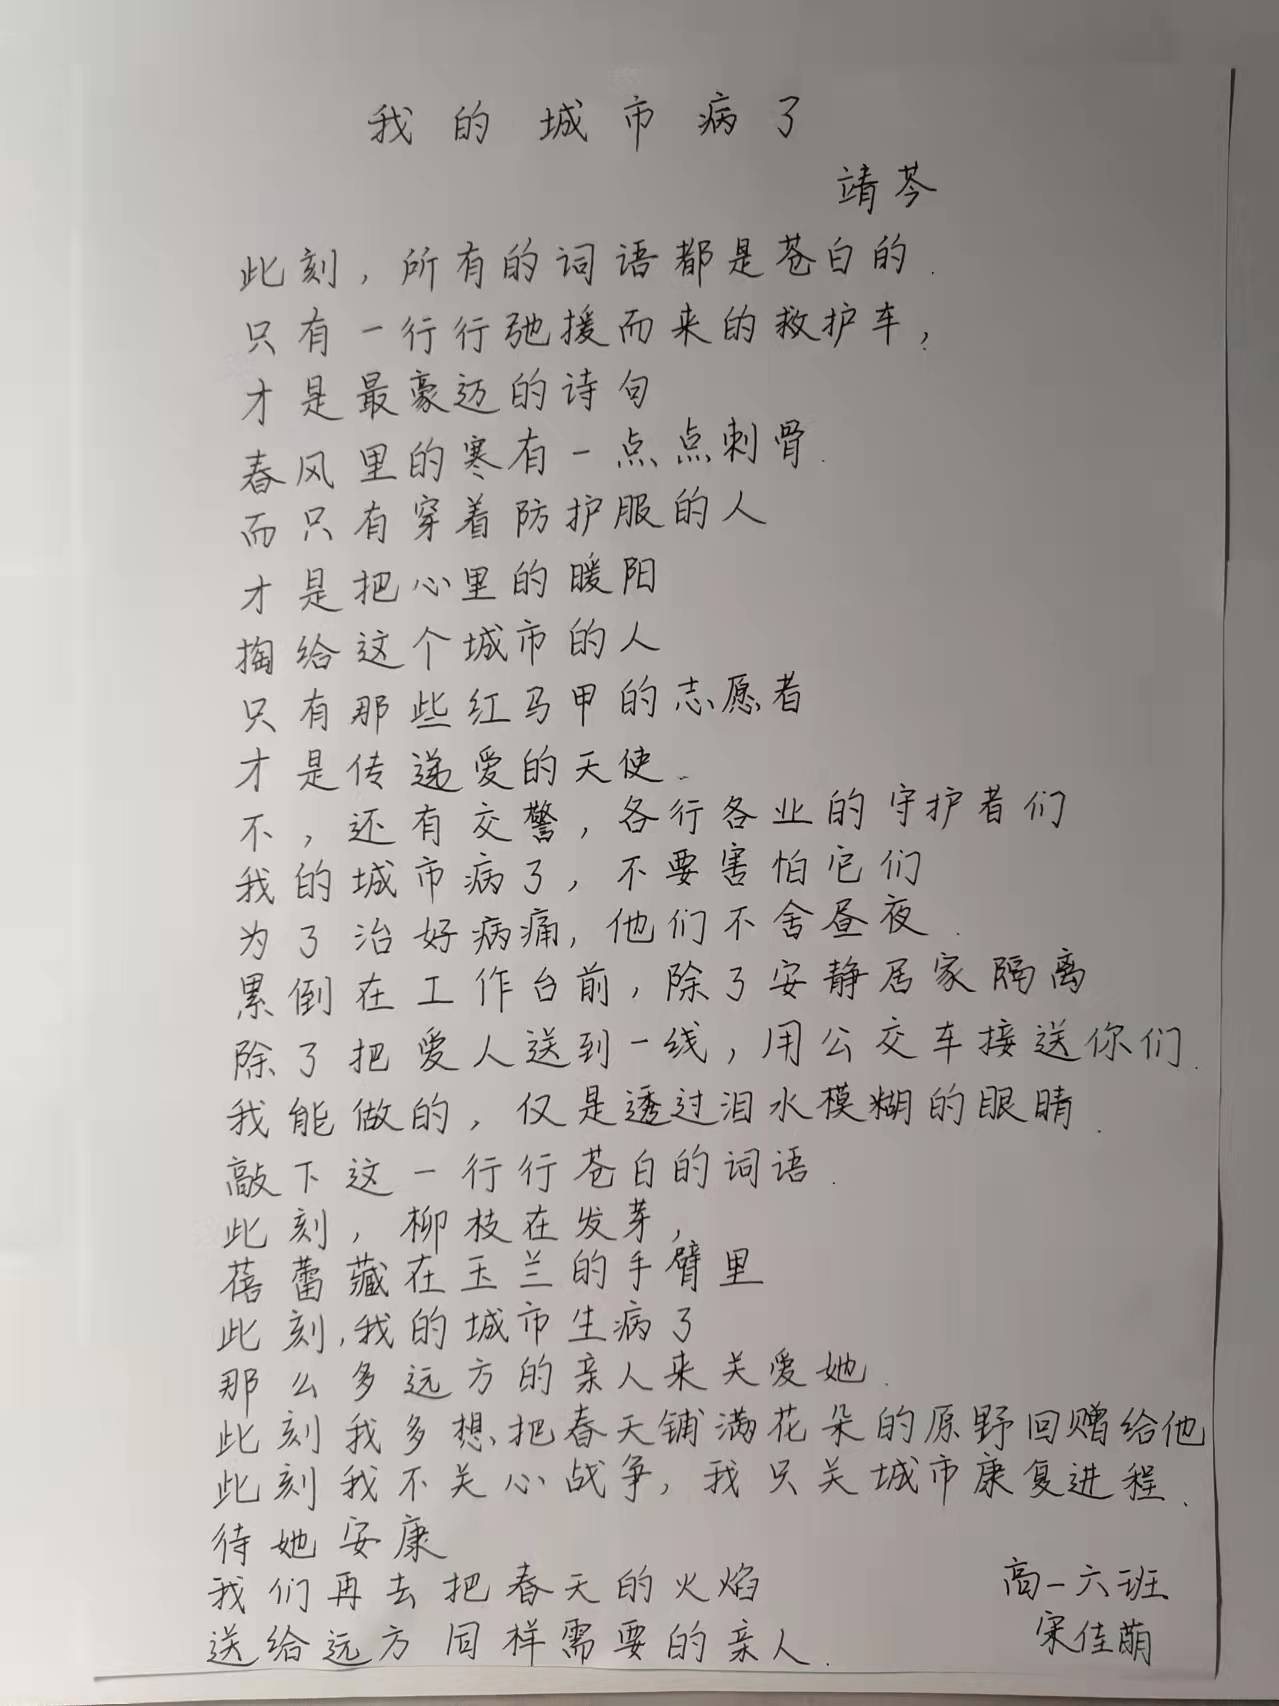 我的城市病了
靖芩
此刻，所有的词语都是苍白的.
只有一行行弛援而来的救护车，
才是最豪迈的诗句
春风里的寒有一点点刺骨.
而只有穿着防护服的人
才是把心里的暖阳
掏给这个城市的人
只有那些红马甲的志愿者
才是传递爱的天使.
不，还有交警，各行各业的守护者们
我的城市病了，不要害怕它们
为了治好病痛，他们不舍昼夜.
累倒在工作台前，除了安静居家隔离
除了把爱人送到一线，用公交车接送你们.
我能做的，仅是透过泪水模糊的眼睛.
敲下这一行行苍白的词语.
此刻，柳枝在发芽，
蓓蕾藏在玉兰的手臂里
此刻，我的城市生病了
那么多远方的亲人来关爱她.
此刻我多想把春天铺满花朵的原野回赠给他
此刻我不关心战争，我只关城市康复进程.
待她安康
我们再去把春天的火焰
送给远方同样需要的亲人.
高一六班
宋佳萌